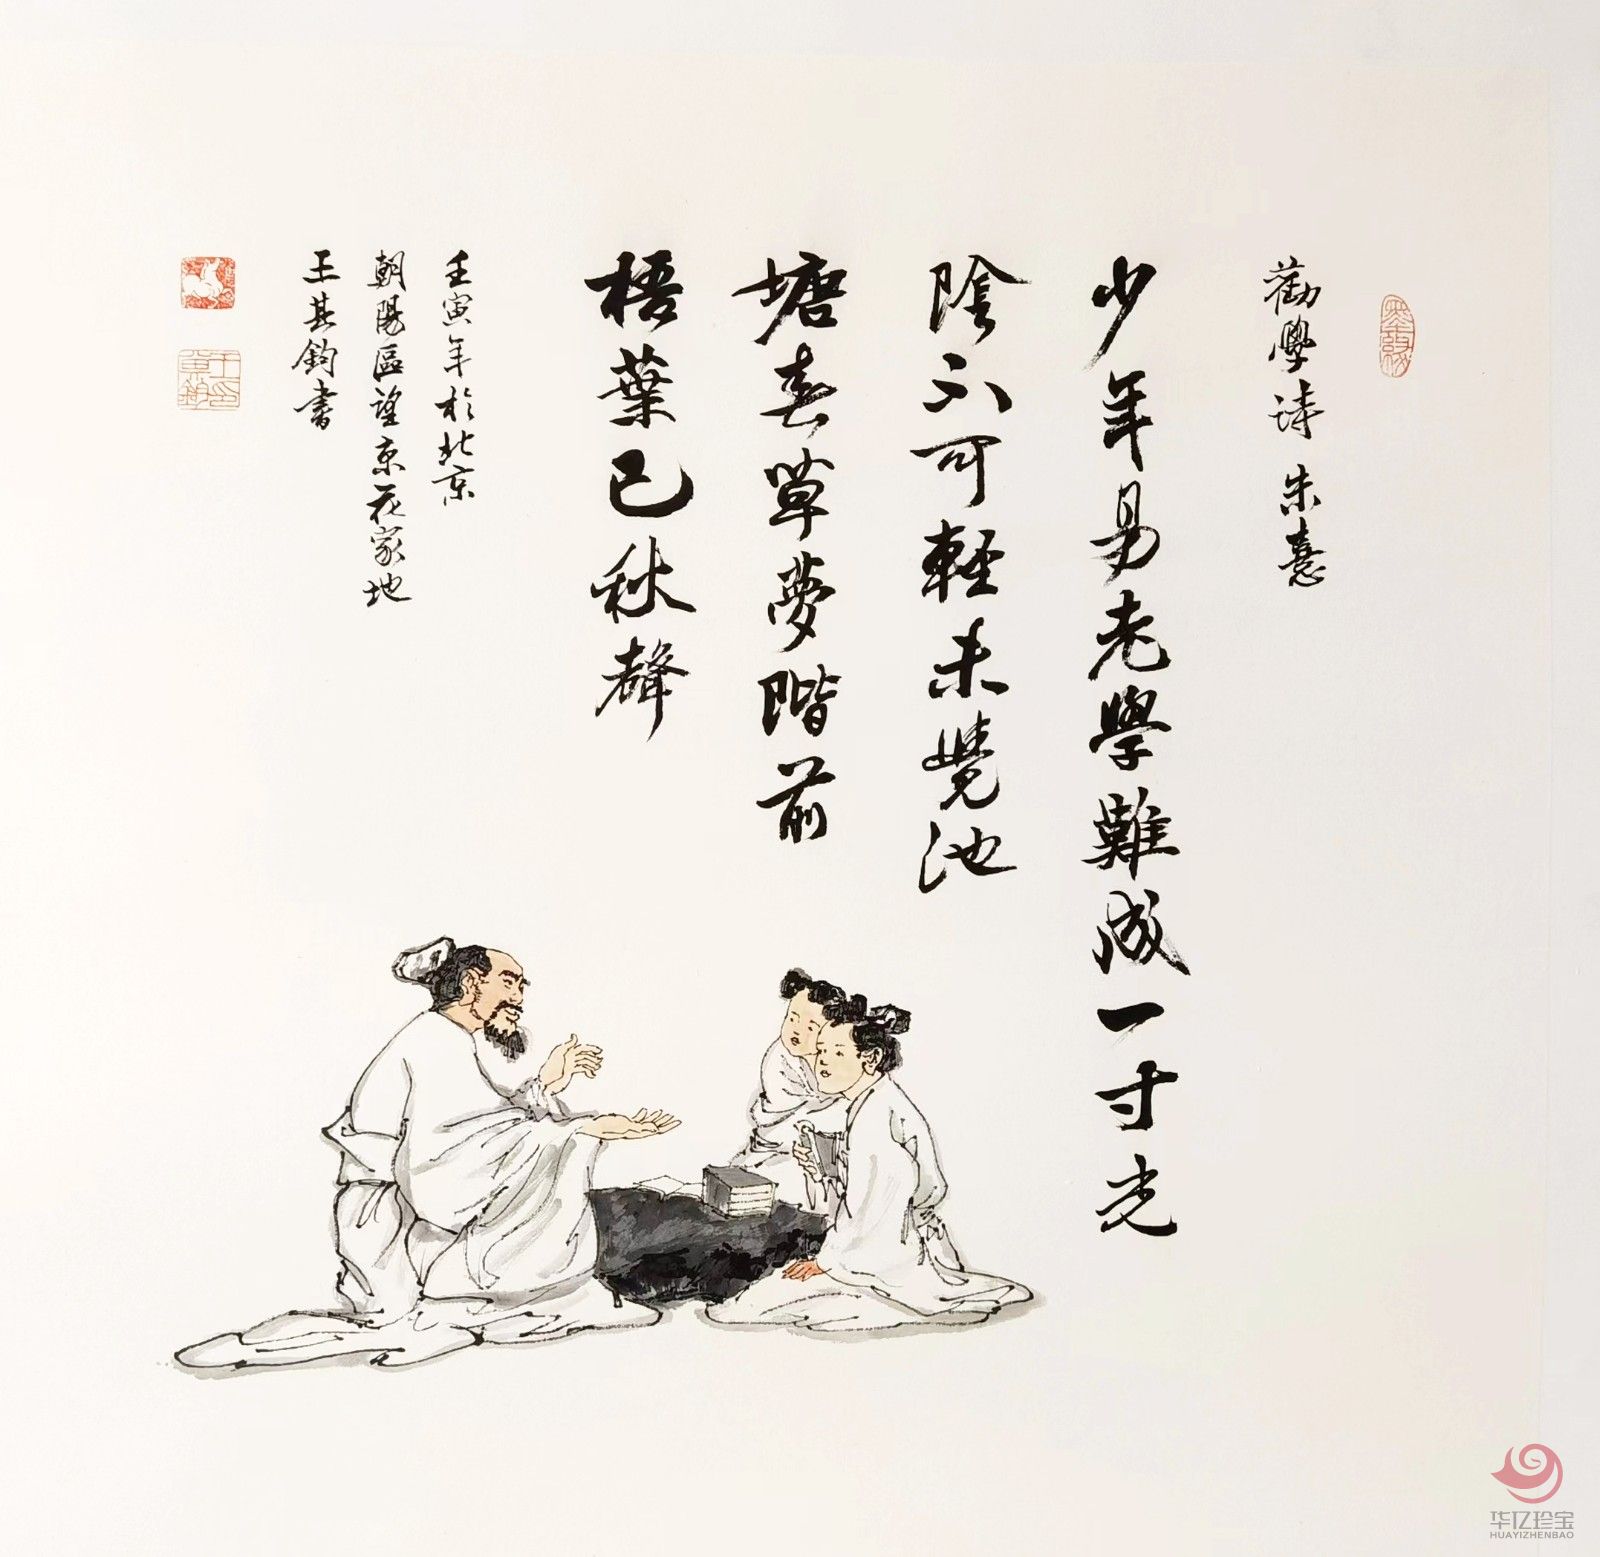 勸學诗 朱熹
少年易老學難成一寸光
陰不可輕未覺池
塘春草夢階前
梧葉已秋聲
壬寅年於北京
朝陽區望京花家地
王其鈞书
华亿珍宝
HUAYIZHENBAO